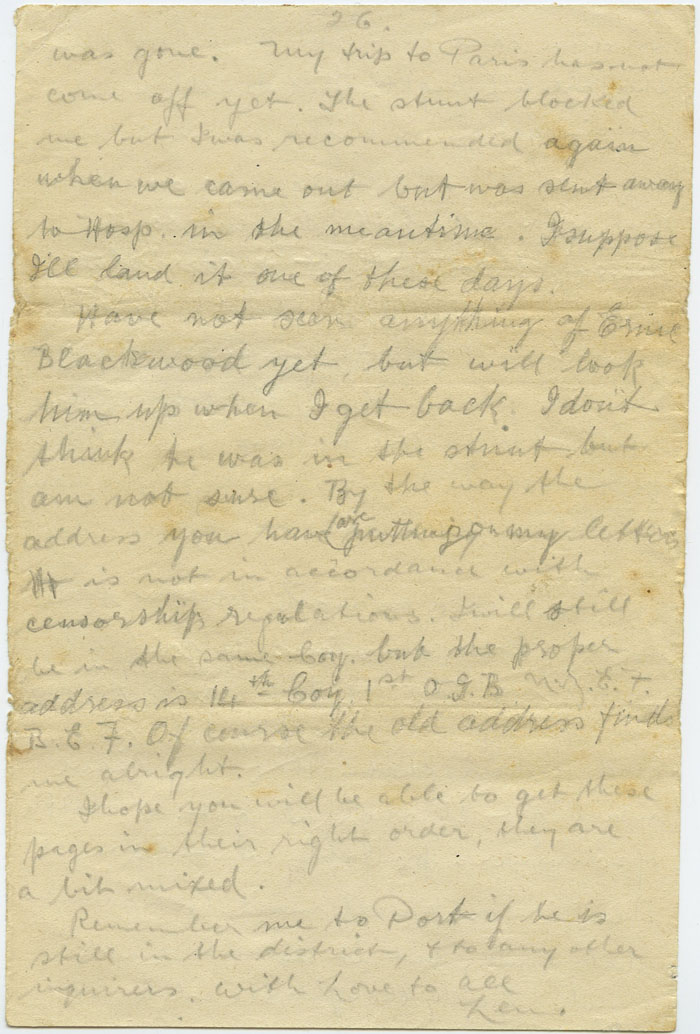 26.
was gone. My trip to Paris has not
come off yet. The stunt blocked
me but I was recommended again
when we came out but was sent away
to Hosp. in the meantime. I suppose
I'll land it one of these days.
Have not seen anything of Ernie
Blackwood yet, but will look
him up when I get back. I don't
think he was in the stunt but
am not sure. By the way the
address you have (are putting) on my letters
is not in accordance with
censorship regulations. I will still
be in the same Coy. but the proper
address is 14th Coy 1st O.I.B. N.Z.E.F.
B.E.F. Of course the old address finds
me alright.
I hope you will be able to get these
pages in their right order, they are
a bit mixed.
Remember me to Dort if he is
still in the district, & to any other
inquirers. with Love to all
Len.